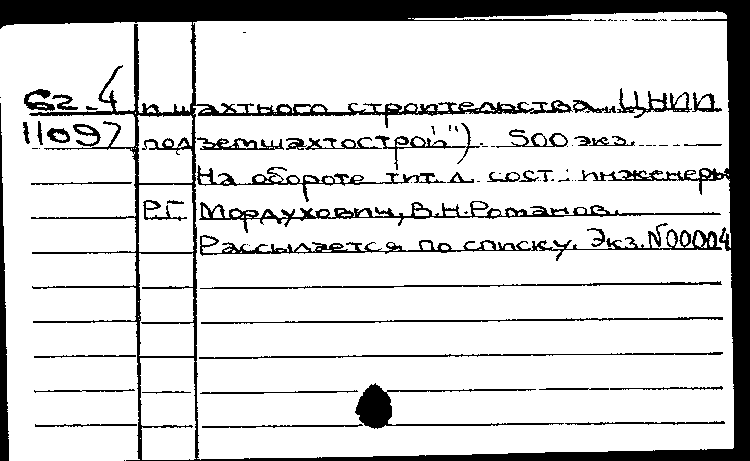 Сг.4 и шахтного строительства „ЦНИИ
11097 подземшахтострой"). 500 экз.
На обороте тит. л. сост.: инженеры
Р.Г. Мордухович, В.Н. Романов.
Рассылается по списку. Экз. N 00004